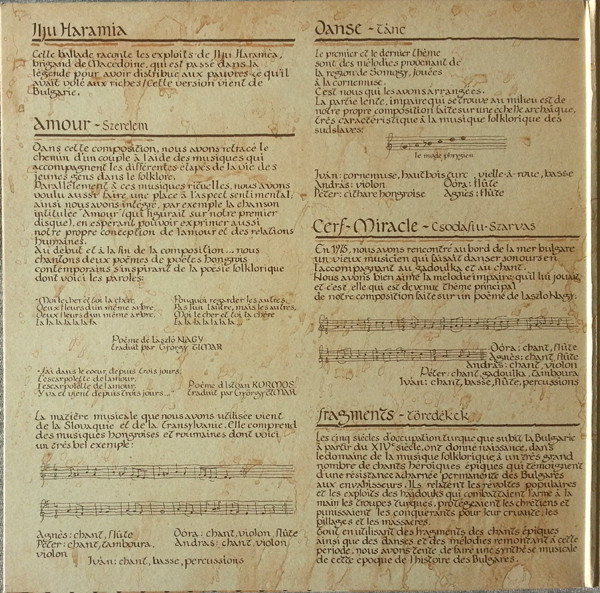 Ilju Haramia
Cette ballade raconte les exploits de Ilju Haramèa,
brigand de Macédoine, qui est passé dans la
légende pour avoir distribué aux pauvres ce qu'il
avait volé aux riches! Cette version vient de
Bulgarie.
Amour - Szerelem
Dans cette composition, nous avons retracé le
chemin d'un couple à l'aide des musiques qui
accompagnent les différentes étapes de la vie des
jeunes gens dans le folklore.
Parallèlement à ces musiques rituelles, nous avons
voulu aussi faire une place à l'aspect sentimental,
ainsi nous avons intégré, par exemple la chanson
intitulée "Amour" (qui figurait sur notre premier
disque), en espérant pouvoir exprimer aussi
notre propre conception de l'amour et des relations
humaines.
Au début et à la fin de la composition... nous
chantons deux poèmes de poètes hongrois
contemporains s'inspirant de la poésie folklorique
dont voici les paroles:
"Moi le cher et toi la chère,
Deux fleurs d'un même arbre.
Deux fleurs d'un même arbre,
La la la la la la
Pourquoi regarder les autres,
Pas l'un l'autre, mais les autres,
Moi le cher et toi la chère
La la la la la..."
Poème de László NAGY
traduit par György TIMAR
"J'ai dans le coeur, depuis trois jours,
L'escarpolette de l'amour,
L'escarpolette de l'amour,
Y va et vient depuis trois jours..."
Poème d'István KORMOS
traduit par György TIMAR
La matière musicale que nous avons utilisée vient
de la Slovaquie et de la Transylvanie. Elle comprend
des musiques hongroises et roumaines dont voici
un très bel exemple:
Agnès: chant, flûte
Dóra: chant, violon, flûte
Péter: chant, tamboura,
András: chant, violon
violon
Iván: chant, basse, percussions
Danse - Tánc
Le premier et le dernier thème
sont des mélodies provenant de
la région de Somogy, jouées
à la cornemuse.
C'est nous qui les avons arrangées.
La partie lente, impaire qui se trouve au milieu est de
notre propre composition faite sur une échelle archaïque,
très caractéristique à la musique folklorique des
sudslaves:
le mode phrygien
Iván: cornemuse, hautbois turc, vielle-à-roue, basse
András: violon
Dóra: flûte
Péter: cithare hongroise
Agnès: flûte
Cerf-Miracle - Csodafiu-Szarvas
En 1975, nous avons rencontré au bord de la mer bulgare
un vieux musicien qui faisait danser son ours en
l'accompagnant au gadoulka et au chant.
Nous avons bien aimé la mélodie impaire qu'il lui jouait,
et c'est elle qui est devenue thème principal
de notre composition faite sur un poème de László Nagy.
Dóra: chant, flûte
Agnès: chant, flûte
András: chant, violon
Péter: chant, gadoulka, tamboura
Iván: chant, basse, flûte, percussions
Fragments - Töredékek
Les cinq siècles d'occupation turque que subit la Bulgarie
à partir du XIVe siècle, ont donné naissance, dans
le domaine de la musique folklorique à un très grand
nombre de chants héroïques épiques qui témoignent
d'une résistance acharnée permanente des Bulgares
aux envahisseurs. Ils relatent les révoltes populaires
et les exploits des haïdouks qui combattaient l'arme à la
main les troupes turques, protégeaient les chrétiens et
punissaient les conquérants pour leur cruauté, les
pillages et les massacres.
Tout en utilisant des fragments des chants épiques
ainsi que des danses et des mélodies remontant à cette
période, nous avons tenté de faire une synthèse musicale
de cette époque de l'histoire des Bulgares.